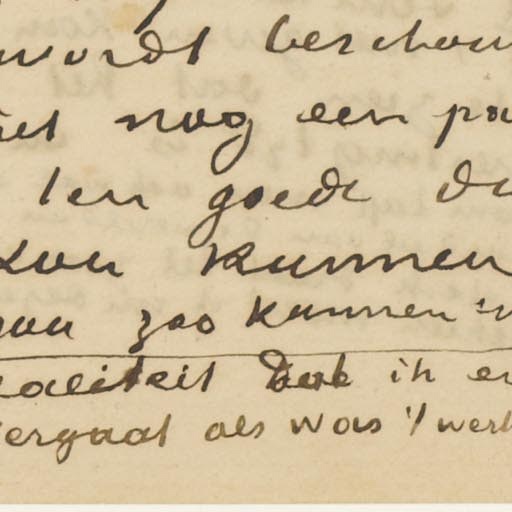 wordt beschou
iet nog een pa
ten goede du
zou kunnen
zou zoo kunnen 'n
ealiteit Dat ik er
ergaat als was 't werk